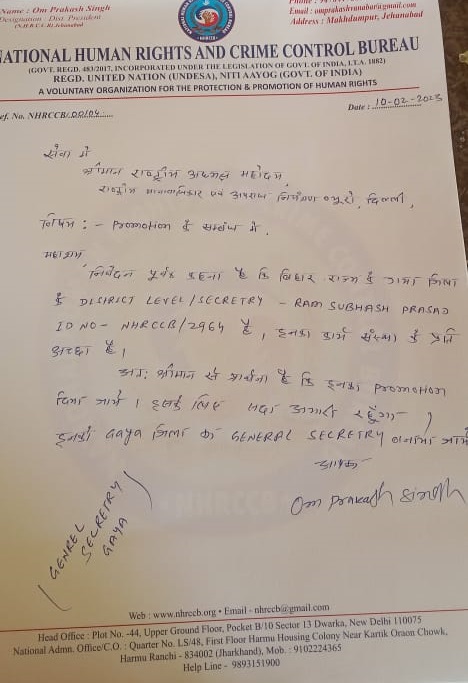 Name : Om Prakash Singh
Designation : Dist. President
(N.H.R.C.C.B) Jehanabad
Phone :
Email : omprakashnunbari@gmail.com
Address : Makhdumpur, Jehanabad
NATIONAL HUMAN RIGHTS AND CRIME CONTROL BUREAU
(GOVT. REGD. 483/2017, INCORPORATED UNDER THE LEGISLATION OF GOVT. OF INDIA, I.T.A. 1882)
REGD. UNITED NATION (UNDESA), NITI AAYOG (GOVT. OF INDIA)
A VOLUNTARY ORGANIZATION FOR THE PROTECTION & PROMOTION OF HUMAN RIGHTS
ef. No. NHRCCB/00/04
Date : 10-02-2023
सेवा में
श्रीमान राष्ट्रीय अध्यक्ष महोदय,
राष्ट्रीय मानवाधिकार एवं अपराध नियंत्रण ब्यूरो, दिल्ली,
विषय : - Promotion के सम्बंध में.
महाशय
निवेदन पूर्वक कहना है कि बिहार राज्य के गया जिला
के DISTRICT LEVEL/SECRETRY - RAM SUBHASH PRASAD
ID NO - NHRCCB/2964 है, इनका कार्य संस्था के प्रति
अच्छा है।
अतः श्रीमान से प्रार्थना है कि इनका Promotion
दिया जाये। इसके लिए सदा आभारी रहूँगा
इनको Gaya जिला का GENERAL SECRETRY बनाया जाये
आपका
Om prakash singh
(GENREL
SECRETRY
GAYA)
NHRCCB
Web : www.nhrccb.org • Email - nhrccb@gmail.com
Head Office : Plot No. -44, Upper Ground Floor, Pocket B/10 Sector 13 Dwarka, New Delhi 110075
National Admn. Office/C.O. : Quarter No. LS/48, First Floor Harmu Housing Colony Near Kartik Oraon Chowk,
Harmu Ranchi - 834002 (Jharkhand), Mob. : 9102224365
Help Line - 9893151900